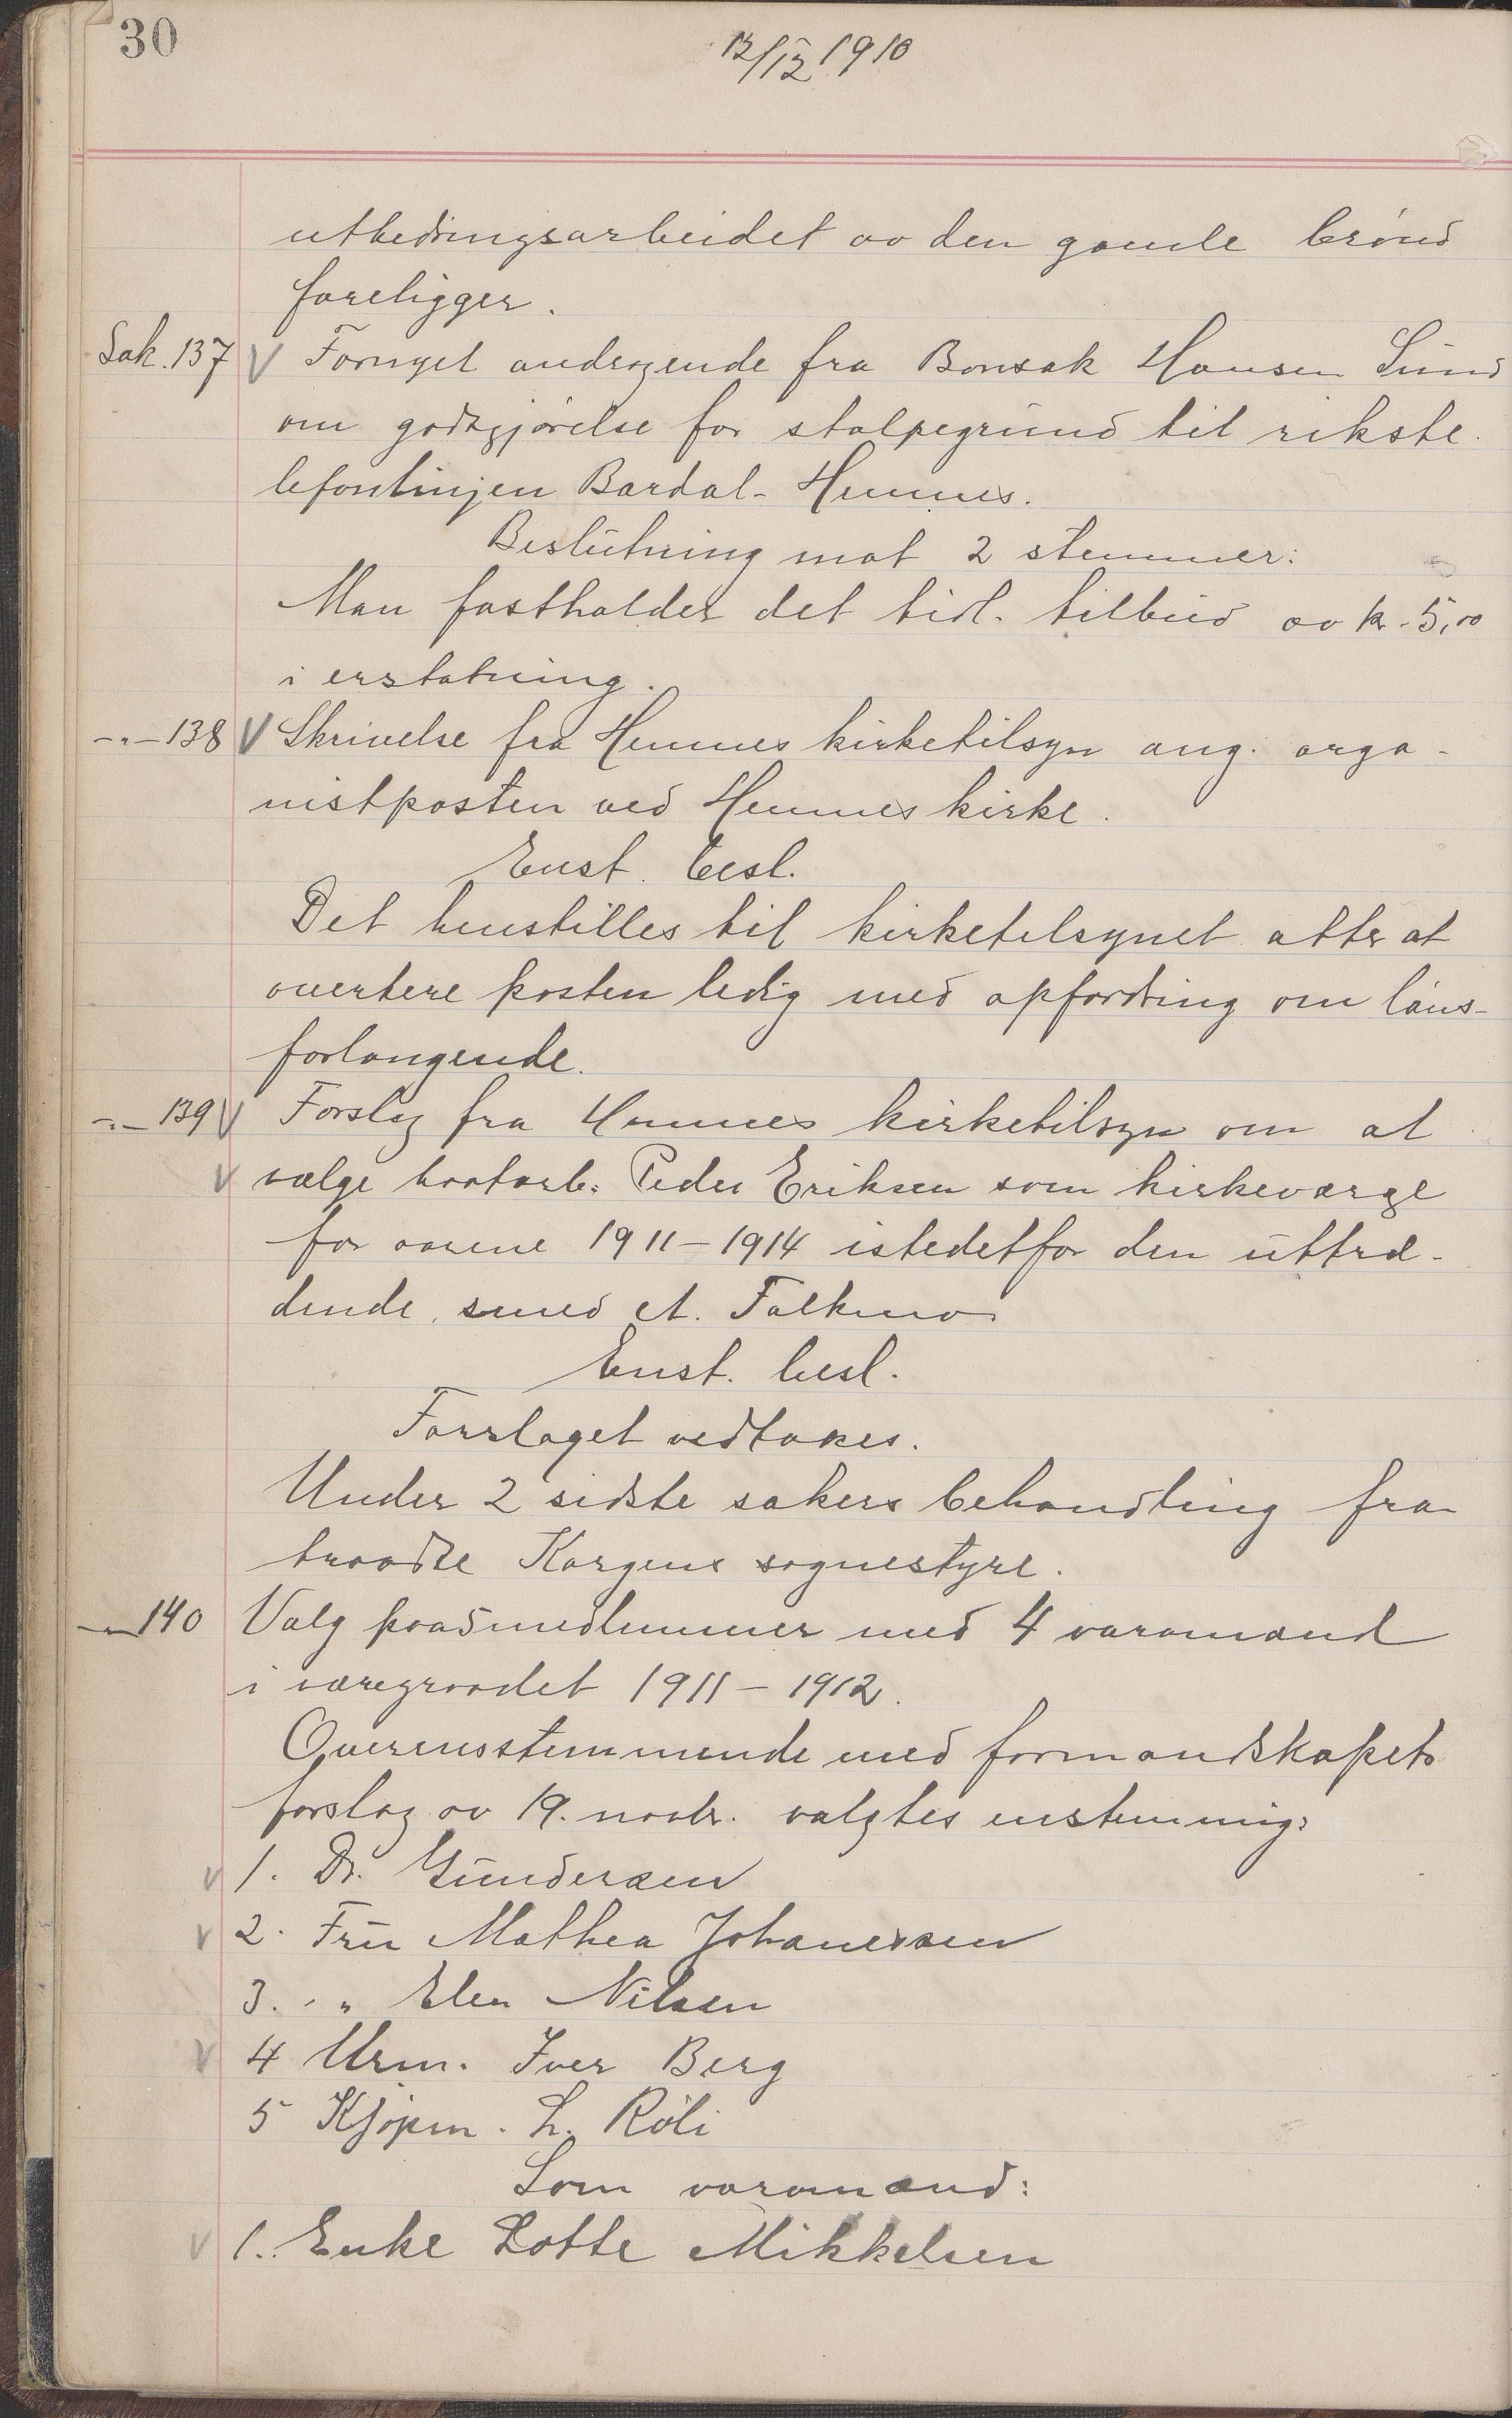 30
12/12 1910
utbedringsarbeidet av den gamle brønd
foreligger.
Sak. 137 V Fornyet andragende fra Bonsak Hansen Sund
om godtgjørelse for stolpegrund til rikste-
lefonlinjen Bardal - Hemnes.
Beslutning mot 2 stemmer:
Man fastholder det tidl. tilbud av kr. 5,00
i erstatning.
-"- 138 V Skrivelse fra Hemnes kirketilsyn ang. orga-
nistposten ved Hemnes kirke.
Enst. besl.
Det henstilles til kirketilsynet atter at
avertere posten ledig med opfordring om løns-
forlangende.
-"- 139 V Forslag fra Hemnes kirketilsyn om at
V vælge Peder Eriksen som kirkeværge
for aarene 1911-1914 istedetfor den uttræ-
dende, smed A. Falkmo
Enst. besl.
Forslaget vedtakes.
Under 2 sidste sakers behandling fra-
traadte Korgens sognestyre.
-"- 140 Valg paa 5 medlemmer med 4 varamænd
i værgeraadet 1911 - 1912.
Overensstemmende med formandskapets
forslag av 19. novbr. valgtes enstemmig:
V 1. Dr. Gundersen
V 2. Fru Mathea Johanessen
3. " Elen Nilsen
V 4 Urm. Iver Berg
5 Kjøpm. L. Røli
Som varamænd:
V 1. Enke Lotte Mikkelsen